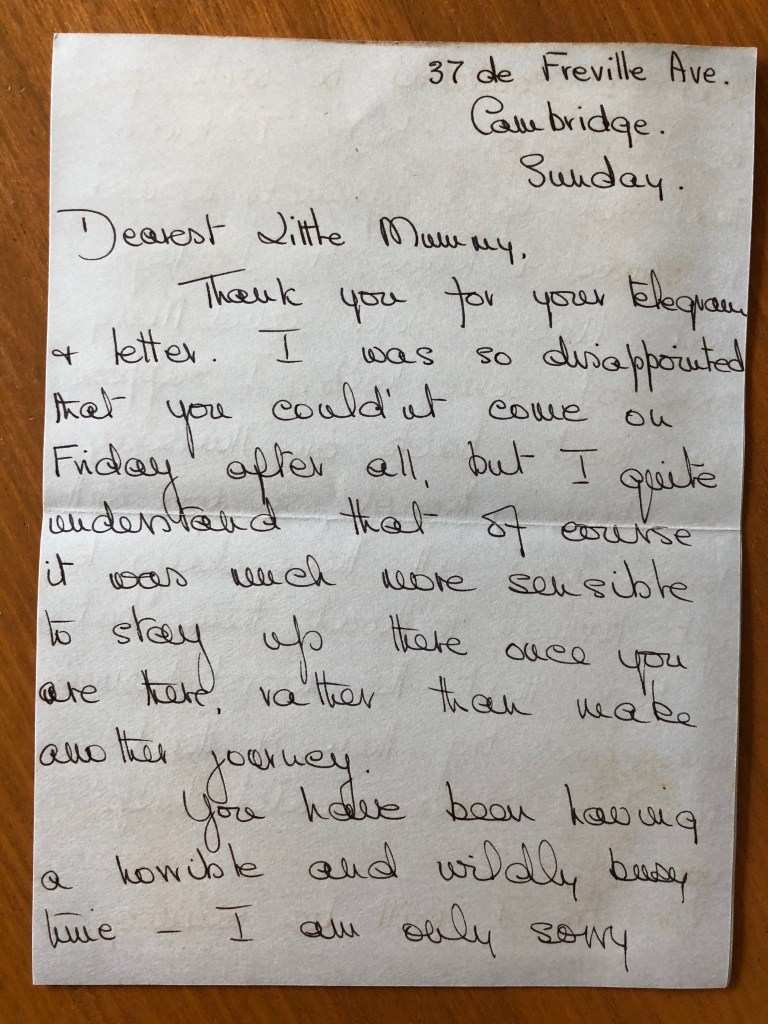 37 de Freville Ave.
Cambridge.
Sunday.
Dearest Little Mummy,
Thank you for your telegram
& letter. I was so disappointed
that you could'nt come on
Friday after all, but I quite
understand that of course
it was much more sensible
to stay up there once you
are there, rather than make
another journey.
You have been having
a horrible and wildly busy
time – I am only sorry